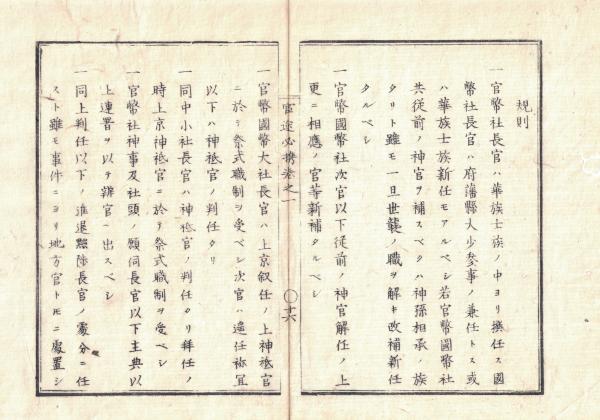 規則
一官幣社長官ハ華族士族ノ中ヨリ撰任ス國
幣社長官ハ府藩縣大少參事ノ兼任トス或
ハ華族士族新任モアルベシ若官幣國幣社
共従前ノ神官ヲ補スベクハ神孫相承ノ族
タリト雖モ一旦世襲ノ職ヲ解キ改補新任
タルベシ
一官幣國幣社次官以下従前ノ神官解任ノ上
更ニ相應ノ官等新補タルベシ
官途必携巻之一
〇十六
一官幣國幣大社長官ハ上京叙任ノ上神祗官
ニ於テ祭式職制ヲ受ベシ次官ハ遥任祢冝
以下ハ神祗官ノ判任タリ
一同中小社長官ハ神祗官ノ判任タリ拜任ノ
時上京神祗官ニ於テ祭式職制ヲ受ベシ
一官幣社神事及社頭ノ願伺長官以下主典以
上連署ヲ以テ辨官ヘ出スベシ
一同上判任以下ノ進退黜陟長官ノ處分ニ任
スト雖モ事件ニヨリ地方官トモニ處置シ